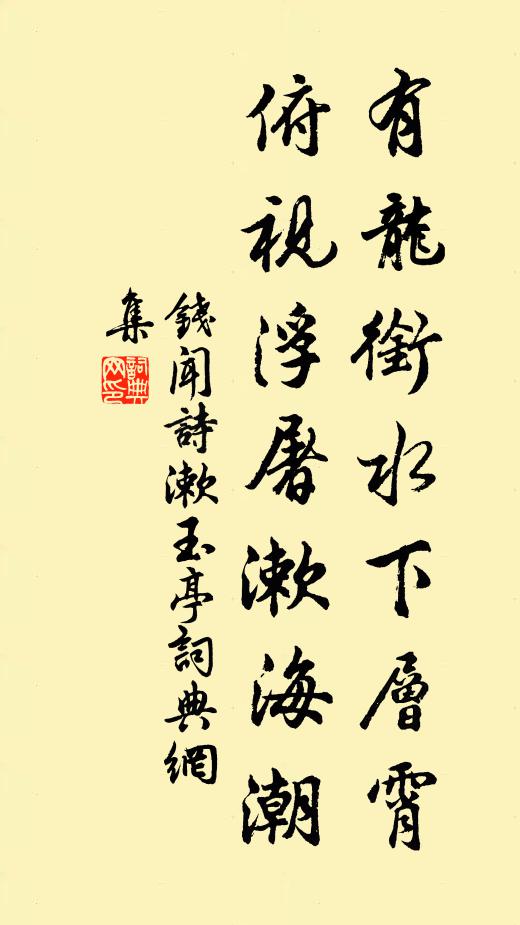 有龍銜水下層霄
俯視浮屠漱海潮
錢聞詩漱玉亭詞典網
集
詞典
网印